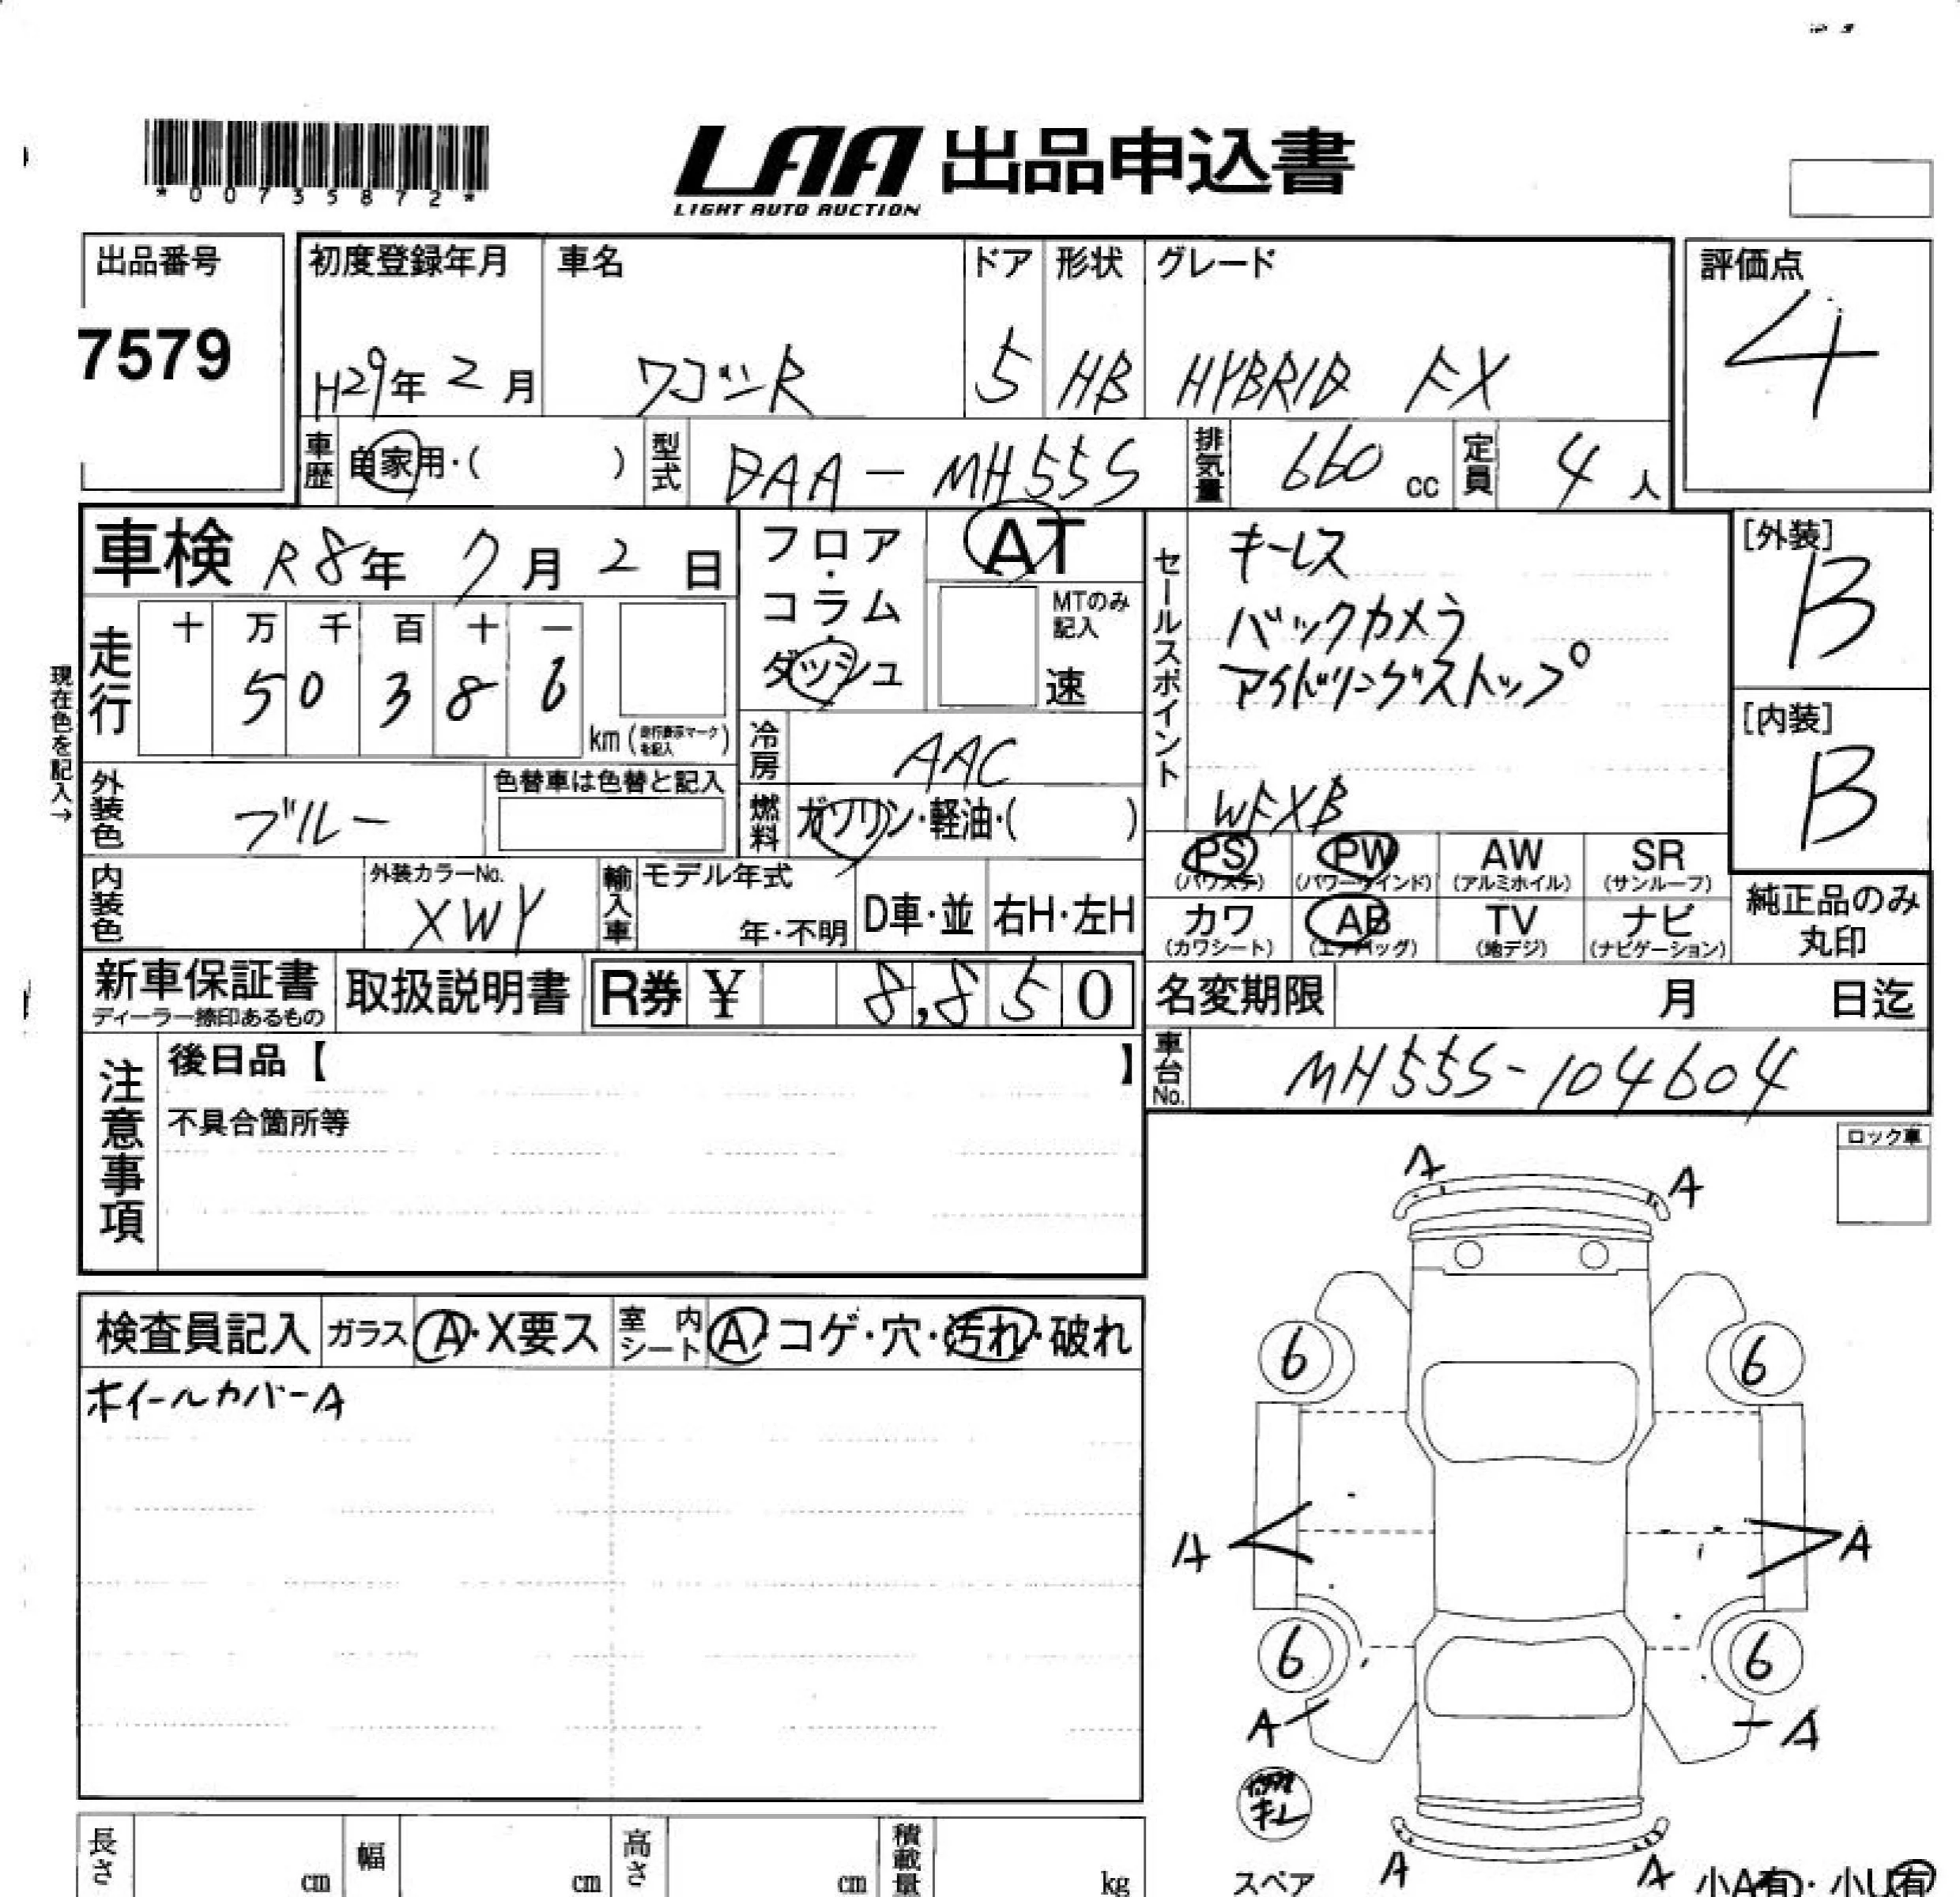 *00735872*
LAA 出品申込書
LIGHT AUTO AUCTION
出品番号
7579
初度登録年月
H29年 2月
車名
ワゴンR
ドア
5
形状
HB
グレード
HYBRID FX
評価点
4
車歴
自家用・( )
型式
DAA-MH55S
排気量
660 cc
定員
4 人
車検 R8年 7月 2日
現在色を記入→
走行
十 万 千 百 十 一
5 0 3 8 6
km(走行表示マークを記入)
フロア・コラム・ダッシュ
AT
MTのみ記入
速
冷房
AAC
燃料
ガソリン・軽油・( )
セールスポイント
キーレス
バックカメラ
アイドリングストップ
WFXB
[外装]
B
[内装]
B
外装色
ブルー
色替車は色替と記入
内装色
外装カラーNo.
XWY
輸入車
モデル年式
年・不明
D車・並
右H・左H
PS
(パワステ)
PW
(パワーウインド)
AW
(アルミホイル)
SR
(サンルーフ)
カワ
(カワシート)
AB
(エアバッグ)
TV
(地デジ)
ナビ
(ナビゲーション)
純正品のみ
丸印
新車保証書
ディーラー捺印あるもの
取扱説明書
R券 ¥ 8,850
名変期限 月 日迄
車台No.
MH55S-104604
注意事項
後日品【 】
不具合箇所等
ロック車
検査員記入
ガラス
A・X要ス
室内シート
A・コゲ・穴・汚れ・破れ
ホイールカバーA
A
A
6
6
A
A
6
6
A
A
A
A
スペア
小A有・小U有
長さ cm
幅 cm
高さ cm
積載量 kg